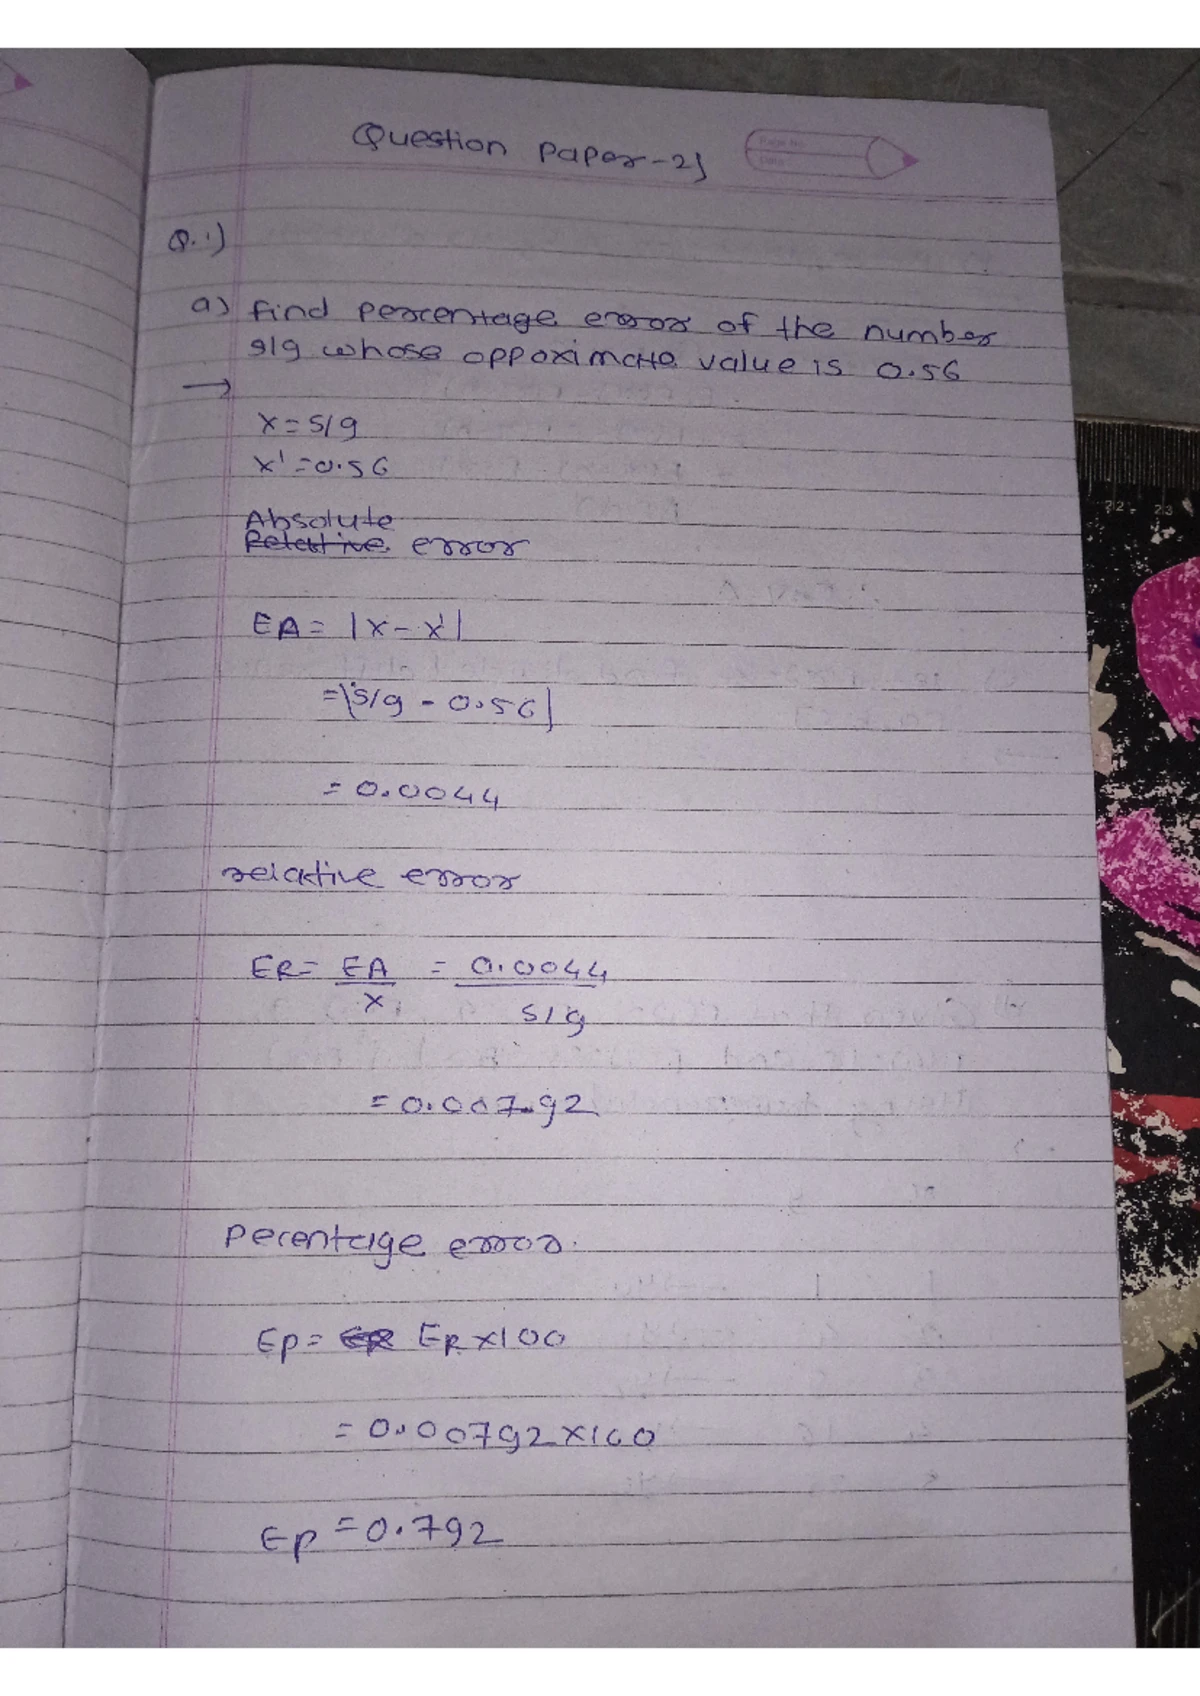 Question Paper-2)
Page No.
Date
Q.1)
a) find percentage error of the number
5/9 whose oppoximate value is 0.56
→
x = 5/9
x' = 0.56
Absolute
Relative error
EA = |x - x'|
= |5/9 - 0.56|
= 0.0044
relative error
ER = EA = 0.0044
x 5/9
= 0.00792
Pecentage error.
Ep = ER ER x100
= 0.00792 x 100
Ep = 0.792
22 23